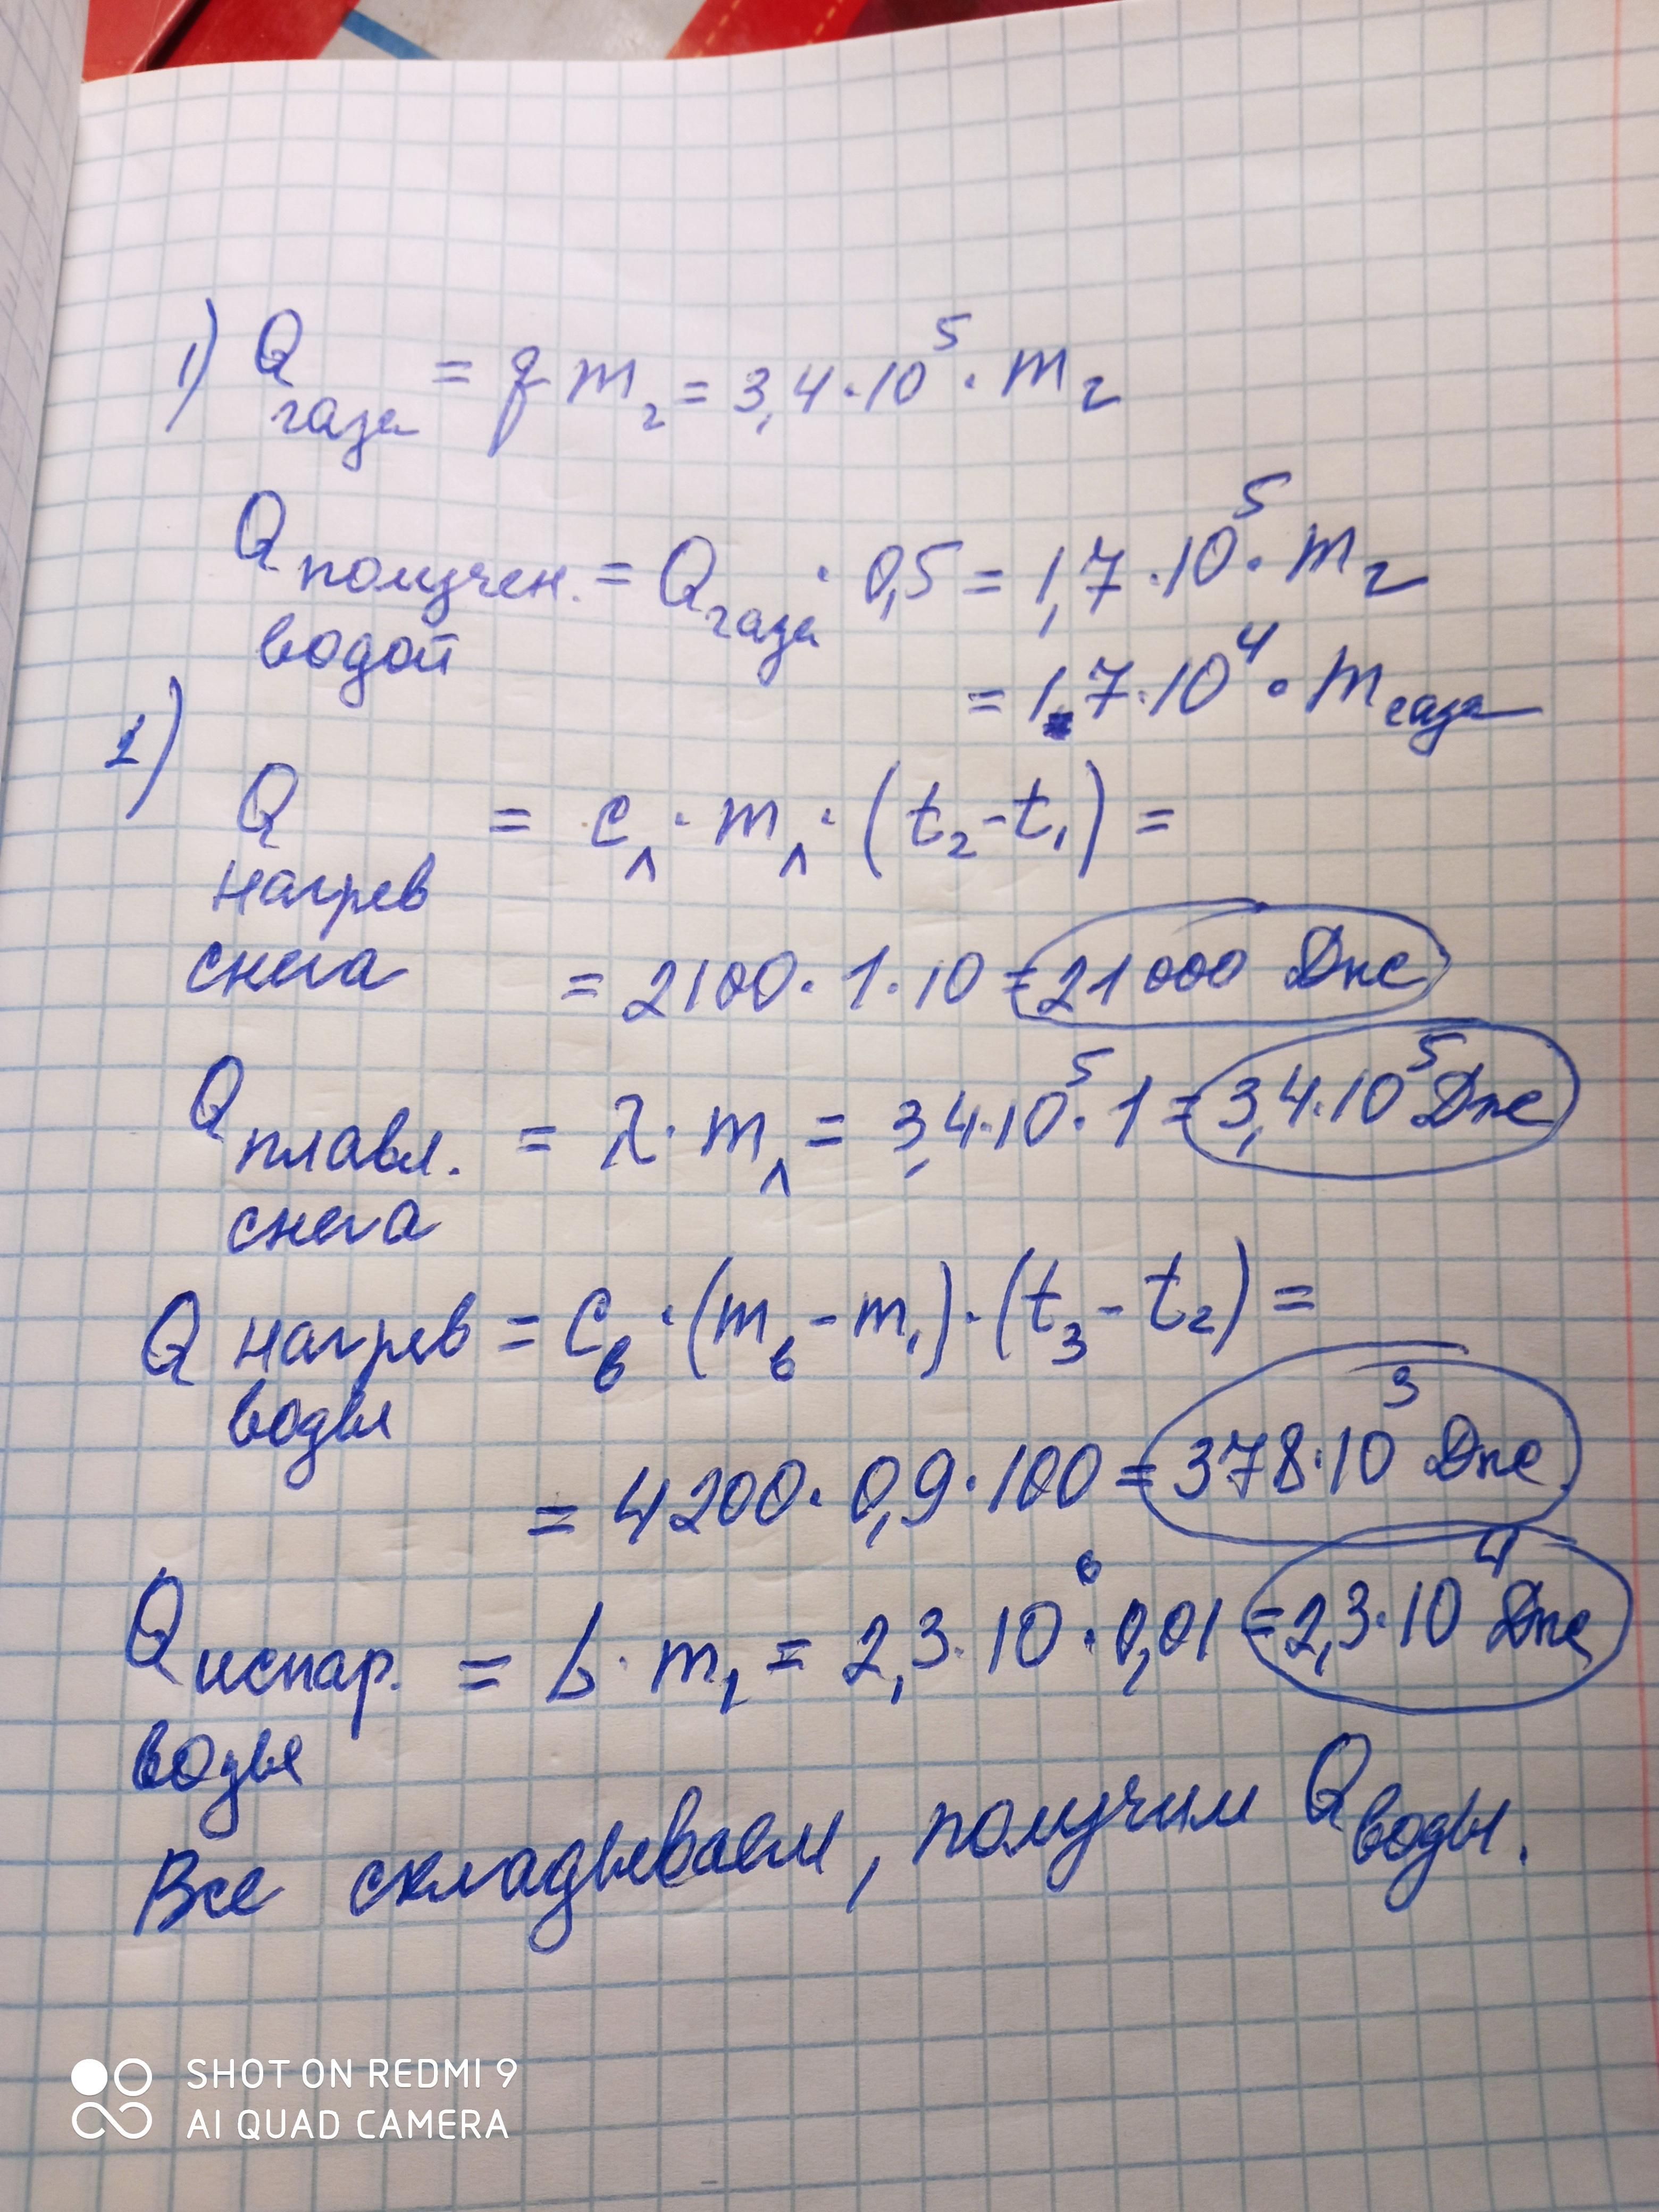 1) Q газа = q m г = 3,4·10⁵ · m г
Q получен. водой = Q газа · 0,5 = 1,7·10⁵ · m г
= 17·10⁴ · m газа
2)
Q нагрев снега = c л · m л · (t₂ - t₁) =
= 2100 · 1 · 10 = 21000 Дж
Q плавл. снега = λ · m л = 3,4·10⁵ · 1 = 3,4·10⁵ Дж
Q нагрев воды = c в · (m в - m₁) · (t₃ - t₂) =
= 4200 · 0,9 · 100 = 378·10³ Дж
Q испар. воды = L · m₁ = 2,3·10⁶ · 0,01 = 2,3·10⁴ Дж
Все складываем, получим Q воды.
SHOT ON REDMI 9
AI QUAD CAMERA